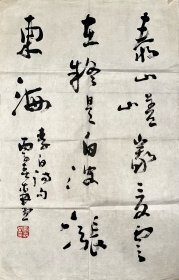 泰山嵯峨夏雲
在疑是白波漲
東海
李白詩句